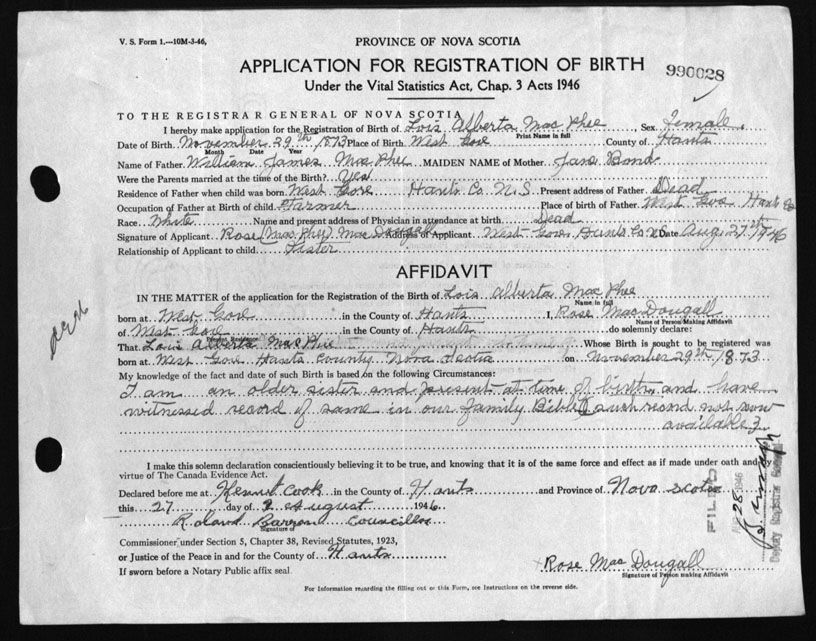 V. S. Form 1.—10M-3-46,
PROVINCE OF NOVA SCOTIA
APPLICATION FOR REGISTRATION OF BIRTH
990028
Under the Vital Statistics Act, Chap. 3 Acts 1946
TO THE REGISTRAR GENERAL OF NOVA SCOTIA
I hereby make application for the Registration of Birth of Lois Alberta MacPhee Sex Female
Print Name in full
Date of Birth November 29th 1873 Place of Birth West Gore County of Hants
Month Date Year
Name of Father William James MacPhee MAIDEN NAME of Mother Jane Bond
Were the Parents married at the time of the Birth? Yes
Residence of Father when child was born West Gore Hants Co. N.S. Present address of Father Dead
Occupation of Father at Birth of child Farmer Place of birth of Father West Gore Hants Co
Race White Name and present address of Physician in attendance at birth Dead
Signature of Applicant Rose (MacPhee) MacDougall of Applicant West Gore, Hants Co N.S. Date Aug. 27th 1946
Relationship of Applicant to child Sister
AFFIDAVIT
IN THE MATTER of the application for the Registration of the Birth of Lois Alberta MacPhee
Name in full
born at West Gore in the County of Hants I, Rose MacDougall
Name of Person Making Affidavit
of West Gore in the County of Hants do solemnly declare:
That Lois Alberta MacPhee Whose Birth is sought to be registered was
born at West Gore Hants County Nova Scotia on November 29th 1873
My knowledge of the fact and date of such Birth is based on the following Circumstances:
I am an older sister and present at time of birth, and have
witnessed record of same in our family Bible (such record not now
available).
I make this solemn declaration conscientiously believing it to be true, and knowing that it is of the same force and effect as if made under oath and by
virtue of The Canada Evidence Act.
Declared before me at Kennetcook in the County of Hants and Province of Nova Scotia
this 27 day of August 1946
Roland Barron Councillor
Signature of
Commissioner under Section 5, Chapter 38, Revised Statutes, 1923,
or Justice of the Peace in and for the County of Hants
If sworn before a Notary Public affix seal.
Rose MacDougall
Signature of Person making Affidavit
For Information regarding the filling out of this Form, see Instructions on the reverse side.
FILED
AUG 28 1946
Deputy Registrar General